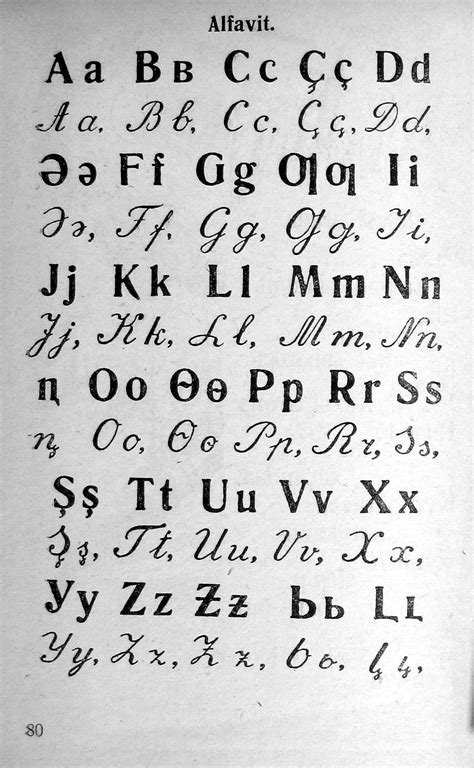 Alfavit.
Aa Bʙ Cc Çç Dd
Aa, Bb, Cc, Çç, Dd,
Əə Ff Gg Ƣƣ Ii
Əə, Ff, Gg, Ƣƣ, Ii,
Jj Kk Ll Mm Nn
Jj, Kk, Ll, Mm, Nn,
ꞑ Oo Өө Pp Rr Ss
ꞑ, Oo, Өө Pp, Rr, Ss,
Şş Tt Uu Vv Xx
Şş, Tt, Uu, Vv, Xx,
Yy Zz Ƶƶ Ьь
Yy, Zz, Ƶƶ, Ьь,
80